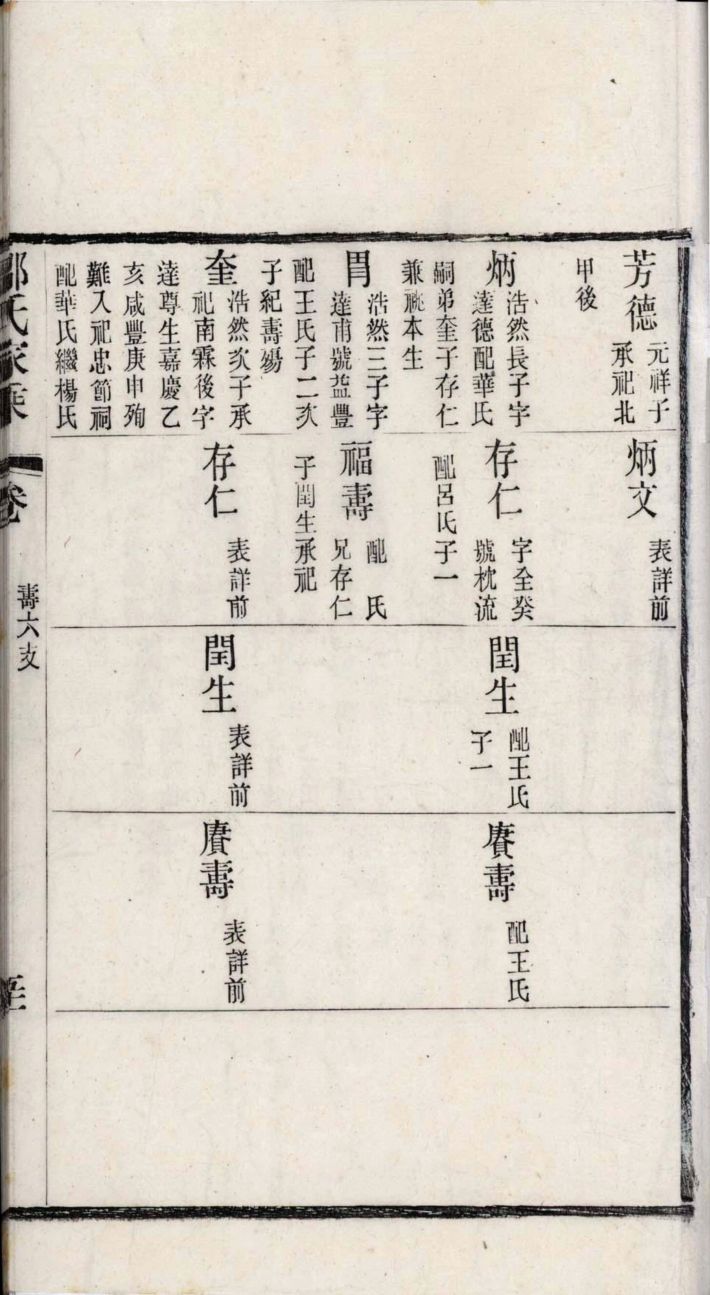 芳德
元祥子
承祀北
甲後
炳
浩然長子字
達德配華氏
嗣弟奎子存仁
兼祧本生
胃
浩然三子字
達甫號益豐
配王氏子二次
子紀壽殤
奎
浩然次子承
祀南霖後字
達尊生嘉慶乙
亥咸豐庚申殉
難入祀忠節祠
配華氏繼楊氏
炳文
表詳前
存仁
字全癸
號枕流
配呂氏子一
福壽
配　氏
兄存仁
子閏生承祀
存仁
表詳前
閏生
配王氏
子一
閏生
表詳前
賡壽
配王氏
賡壽
表詳前
氏家乘
卷
壽六支